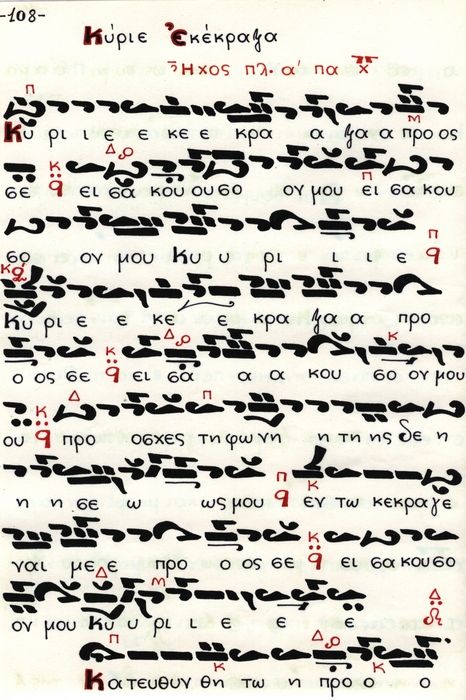 -108-
Κύριε Ἐκέκραξα
Ἦχος πλ. α' πα
Κυ ρι ι ε ε κε ε κρα α ξα α προ ος
σε ει σα κου ου σο ογ μου ει σα κου
σο ογ μου Κυ υ ρι ι ε
Κυ ρι ε ε κε ε κρα ξα α προ
ο ος σε ει σα α α κου σο ογ μου
ου προ οσχες τη φω νη η τη ης δε η
η η σε ω ως μου εν τω κεκραγε
ναι με ε προ ο ος σε ει σα κουσο
ογ μου Κυ υ ρι ι ε ε
Κα τευθυν θη τω η προ ο ο